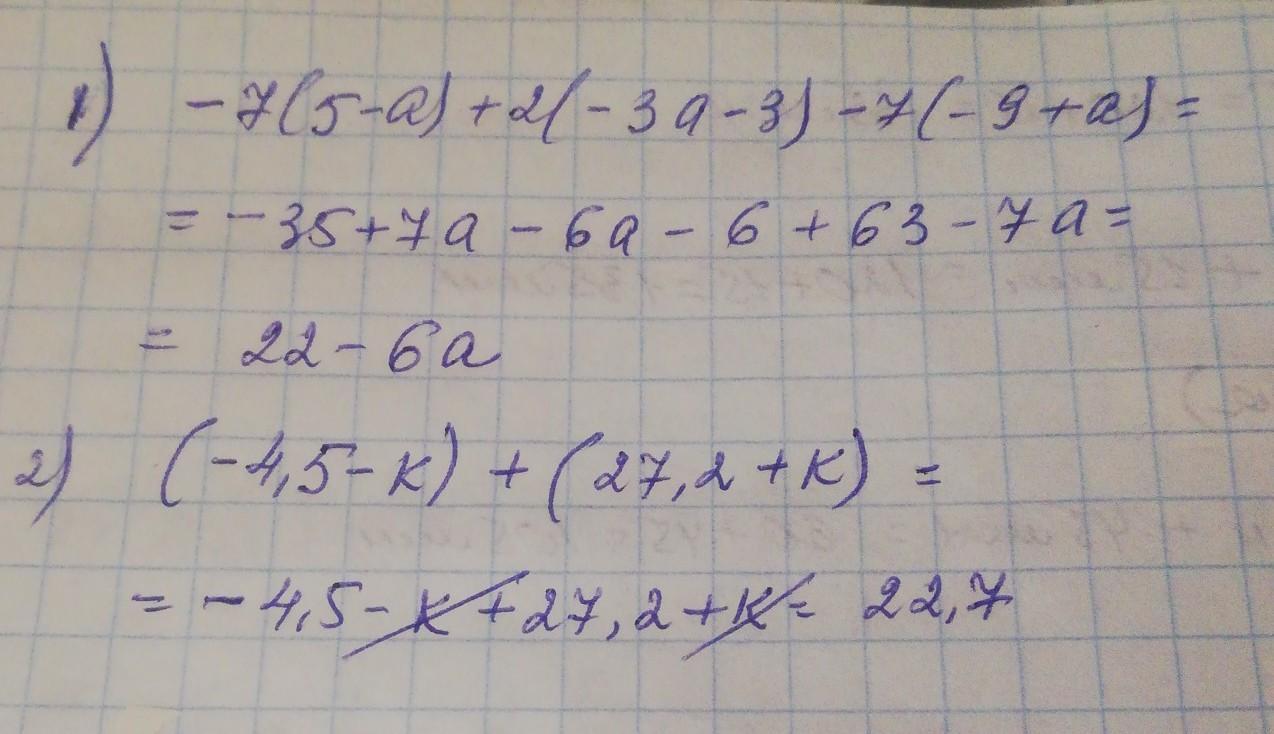 1) -7(5-a)+2(-3a-3)-7(-9+a)=
=-35+7a-6a-6+63-7a=
= 22-6a
2) (-4,5-к)+(27,2+к)=
=-4,5-к+27,2+к= 22,7